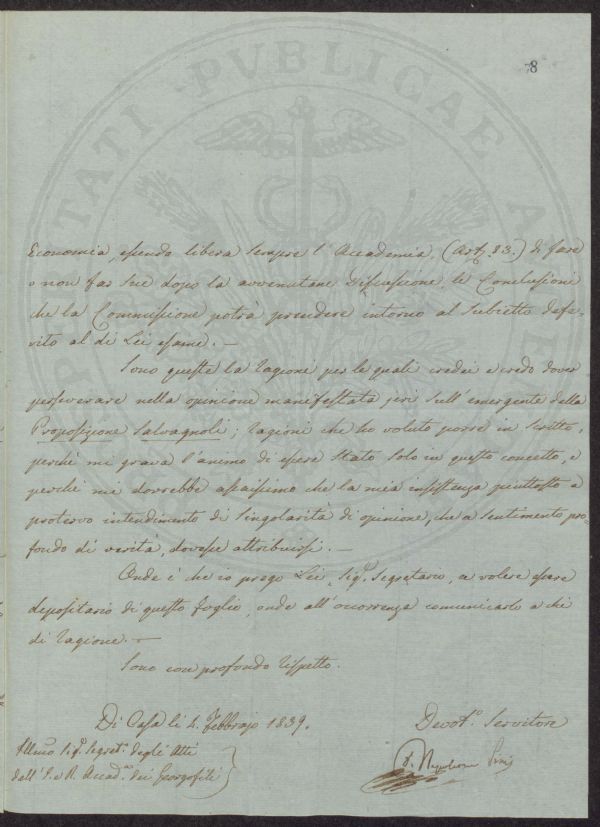 8
PROSPERITATI PUBLICAE AUGENDAE
Economia, essendo libera sempre l'Accademia, (Art. 83.) di fare
o non far sue dopo la avvenutane Discussione, le Conclusioni
che la Commissione potrà prendere intorno al subietto defe-
rito al di Lei esame. —
Sono queste le ragioni per le quali credei e credo dover
perseverare nella opinione manifestata jeri sull'emergente della
Proposizione Salvagnoli; ragioni che ho voluto porre in scritto,
perchè mi grava l'animo di essere stato solo in questo concetto, e
perchè mi dorrebbe assaissimo che la mia insistenza piuttosto a
protervo intendimento di singolarità di opinione, che a sentimento pro-
fondo di verità, dovesse attribuirsi. —
Onde è che io prego Lei, Sig.r Segretario, a volere essere
depositario di questo foglio, onde all'occorrenza comunicarlo a chi
di ragione. —
Sono con profondo rispetto.
Di Casa li 4. Febbrajo 1839.
Devot.o Servitore
Ill.mo Sig.r Segret.o degli Atti
dell'I. e R. Accad.a dei Georgofili
Napoleone Pini